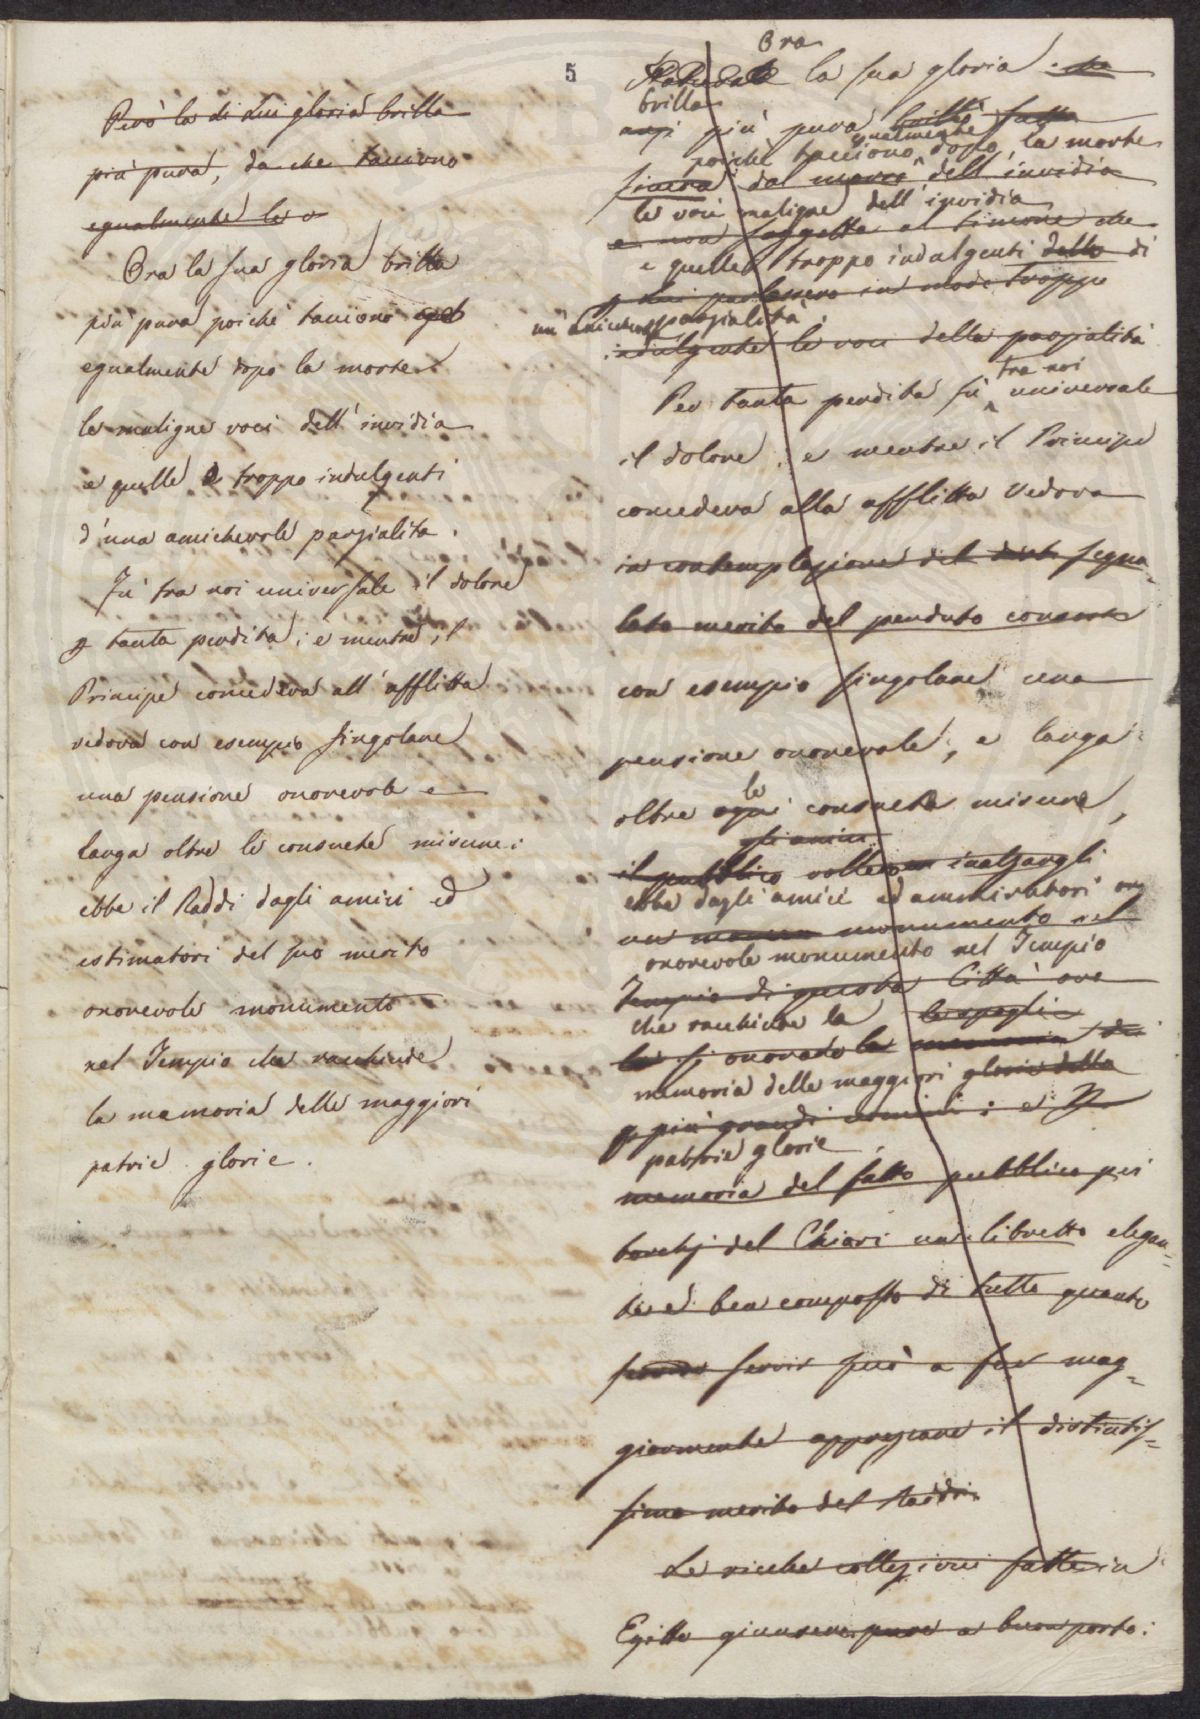 5
Però la di Lui gloria brilla
più pura, da che tacciono
egualmente le v
Ora la sua gloria brilla
più pura poichè tacciono
egualmente dopo la morte
le maligne voci dell'invidia
e quelle troppo indulgenti
d'una amichevole parzialità.
Fù tra noi universale il dolore
p tanta perdita; e mentre il
Principe concedeva all'afflitta
vedova con esempio singolare
una pensione onorevole e
larga oltre le consuete misure:
ebbe il Raddi dagli amici ed
estimatori del suo merito
onorevole monumento
nel Tempio che racchiude
la memoria delle maggiori
patrie glorie.
Ora
la sua gloria
brilla
più pura brillò
egualmente
poichè tacciono dopo la morte
dal dell'invidia
le voci maligne dell'invidia
e non soggetta al timore che
e quelle troppo indulgenti dello di
p lui parlassero in modo troppo
un' amichevole parzialità.
indulgente le voci della parzialità
tra noi
Per tanta perdita fù universale
il dolore; e mentre il Principe
concedeva alla afflitta Vedova
in contemplazione del segna-
lato merito del perduto consorte
con esempio singolare una
pensione onorevole, e larga
le
oltre ogni consuete misure,
gli amici
il pubblico vollero inalzargli
ebbe dagli amici ed ammiratori
un monumento nel
onorevole monumento nel Tempio
Tempio di questa Città ove
che racchiude la le spoglie
si onorado la memoria di
memoria delle maggiori glorie della
p più grandi uomini: e
patrie glorie
memoria del fatto pubblicò pei
torchj del Chiari un libretto elegan=
te e ben composto di tutto quanto
servir può a far mag=
giormente apprezzare il distintis=
simo merito del Raddi.
Le ricche collezioni fatte in
Egitto giunsero pure a buon porto: